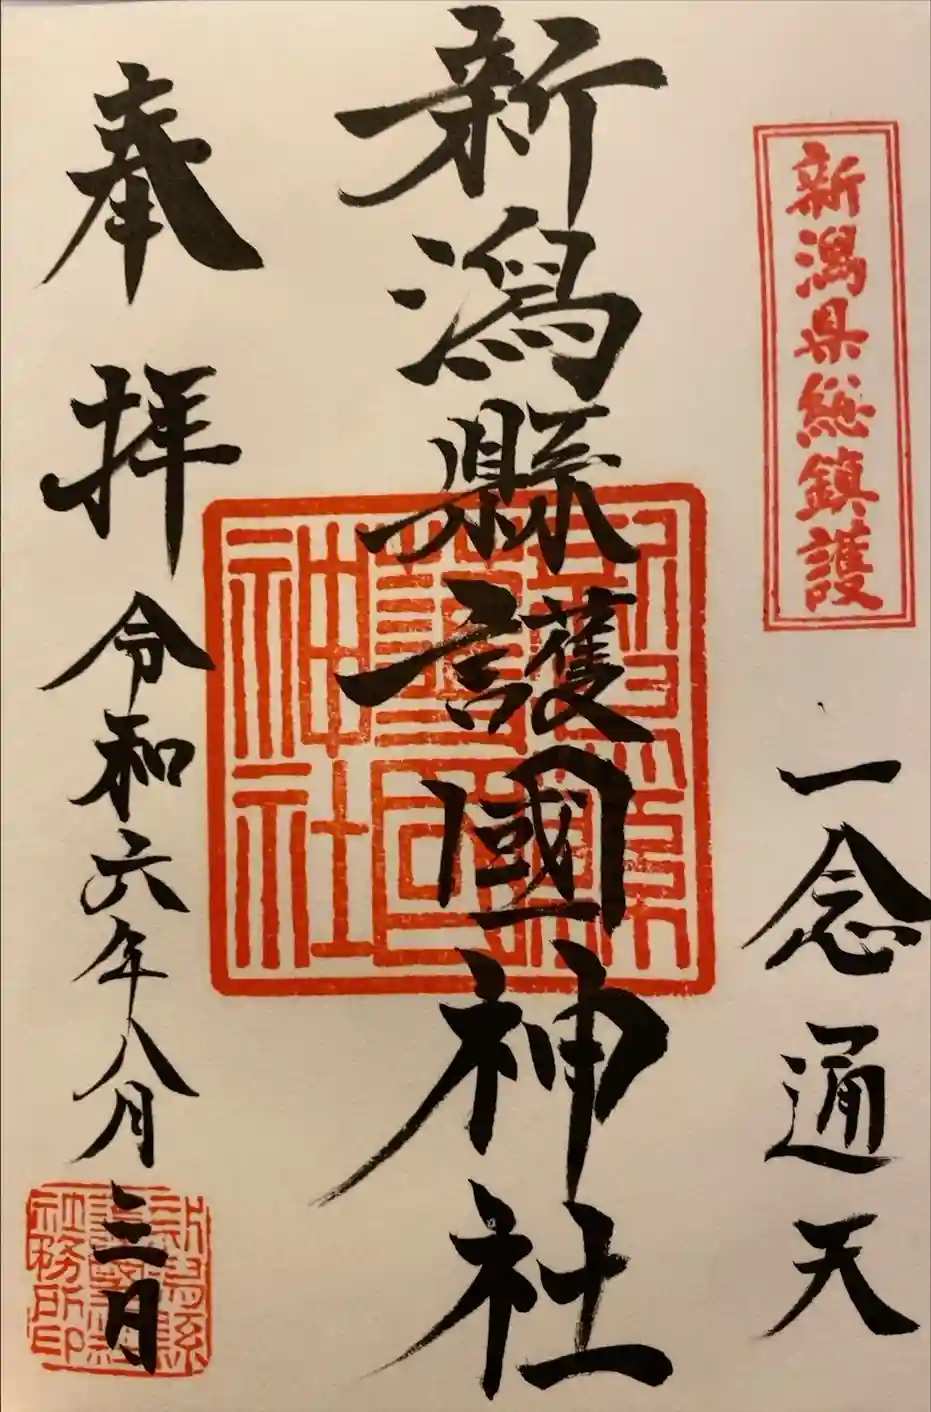 新潟県総鎮護
一念通天
新潟縣護國神社
新潟縣
護國
神社
奉拝
令和六年八月三日
新潟縣
護國神社
社務所印